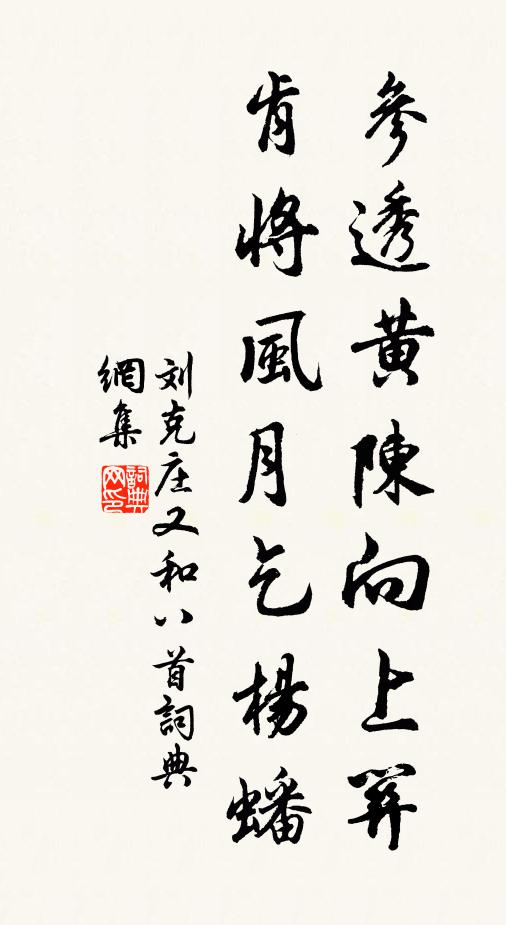 參透黄陳向上關
肯將風月乞楊蟠
刘克庄又和八首詞典
網集
詞典
网印